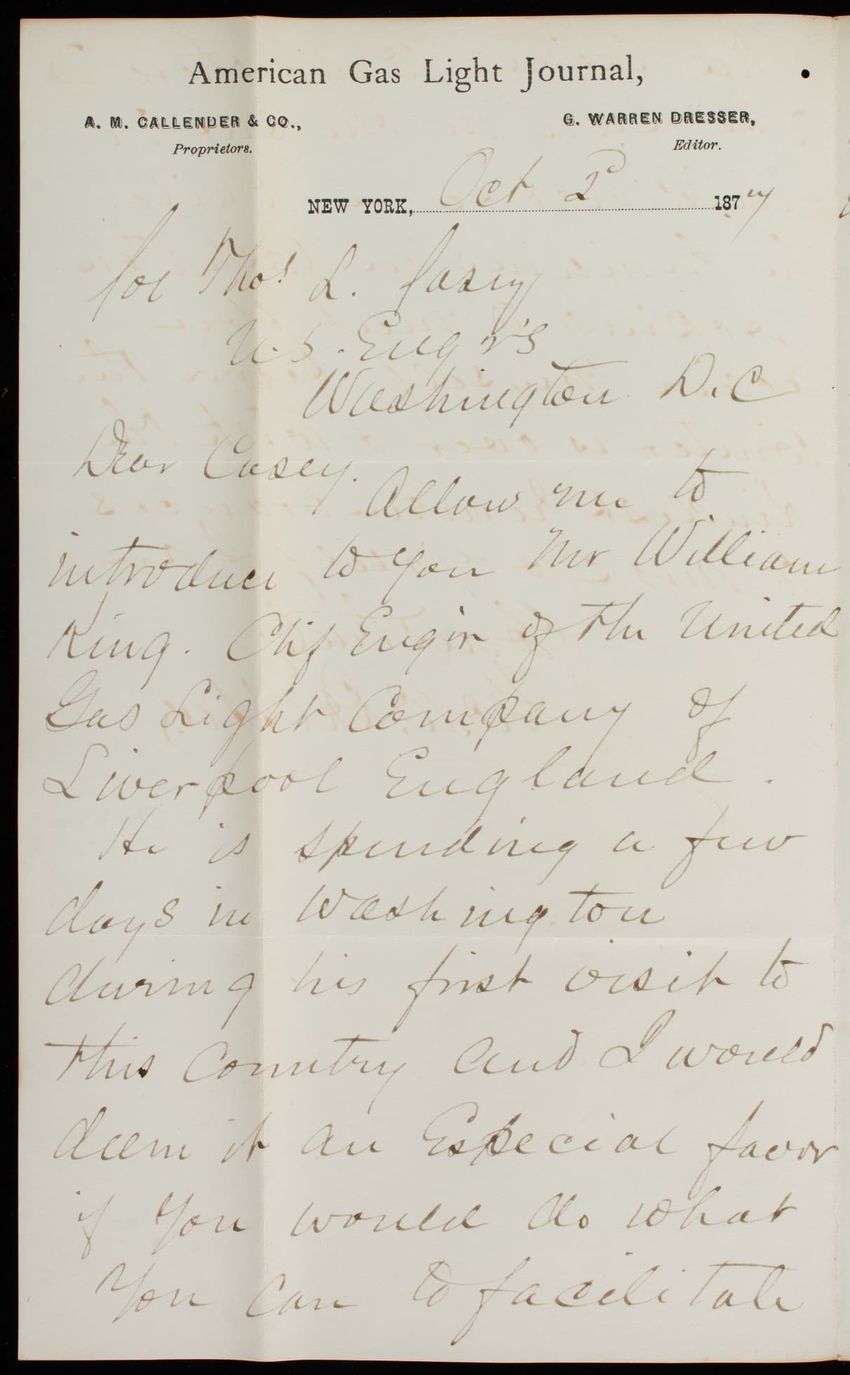 American Gas Light Journal,
A. M. CALLENDER & CO., G. WARREN DRESSER,
Proprietors. Editor.
NEW YORK, Oct 2d 1877
Col Thos L. Casey
U.S. Engr's
Washington D.C
Dear Casey.
Allow me to
introduce to you Mr William
King. Chf Engr of the United
Gas Light Company of
Liverpool England.
He is spending a few
days in Washington
during his first visit to
this Country and I would
deem it an Especial favor
if you would do what
you can to facilitate